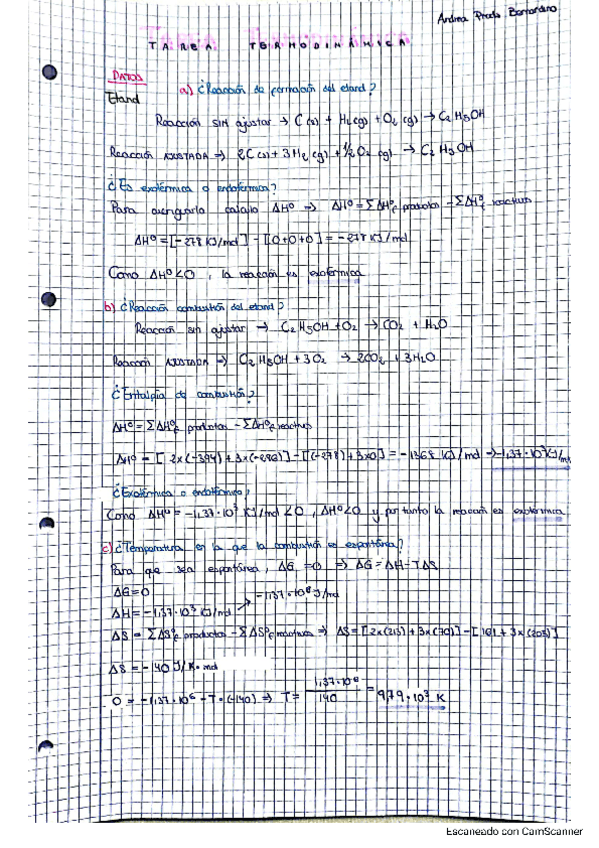 Andrea Prado Bernardino
TAREA TERMODINÁMICA
DATOS
Etanol
a) ¿Reacción de formación del etanol?
Reacción SIN ajustar → C(s) + H₂(g) + O₂(g) → C₂H₅OH
Reacción AJUSTADA → 2C(s) + 3H₂(g) + ½O₂(g) → C₂H₅OH
¿Es exotérmica o endotérmica?
Para averiguarlo calculo ΔHº ⇒ ΔHº = ΣΔHºf productos - ΣΔHºf reactivos
ΔHº = [-278 KJ/mol] - [0+0+0] = -278 KJ/mol
Como ΔHº<0, la reacción es exotérmica
b) ¿Reacción combustión del etanol?
Reacción sin ajustar → C₂H₅OH + O₂ → CO₂ + H₂O
Reacción AJUSTADA → C₂H₅OH + 3O₂ → 2CO₂ + 3H₂O
¿Entalpía de combustión?
ΔHº = ΣΔHºf productos - ΣΔHºf reactivos
ΔHº = [2x(-394)+3x(-286)] - [(-278)+3x0] = -1368 KJ/mol → -1,37·10³KJ/mol
¿Exotérmica o endotérmica?
Como ΔHº = -1,37·10³ KJ/mol < 0, ΔHº<0 y por tanto la reacción es exotérmica
c) ¿Temperatura en la que la combustión es espontánea?
Para que sea espontánea, ΔG = 0 ⇒ ΔG = ΔH - TΔS
ΔG = 0
-1,37·10⁶ J/mol
ΔH = -1,37·10³ KJ/mol
ΔS = ΣΔSºf productos - ΣΔSºf reactivos ⇒ ΔS = [2x(213)+3x(70)] - [161+3x(205)]
ΔS = -140 J/K·mol
0 = -1,37·10⁶ - T·(-140) ⇒ T = 1,37·10⁶ / 140 = 9,79·10³ K
Escaneado con CamScanner